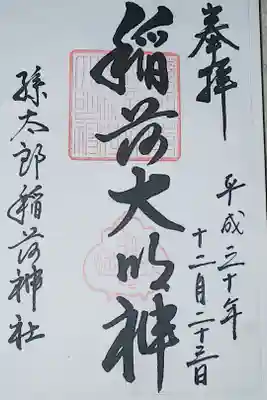 奉拝
平成三十年
十二月二十三日
稲荷大明神
孫太郎稲荷神社